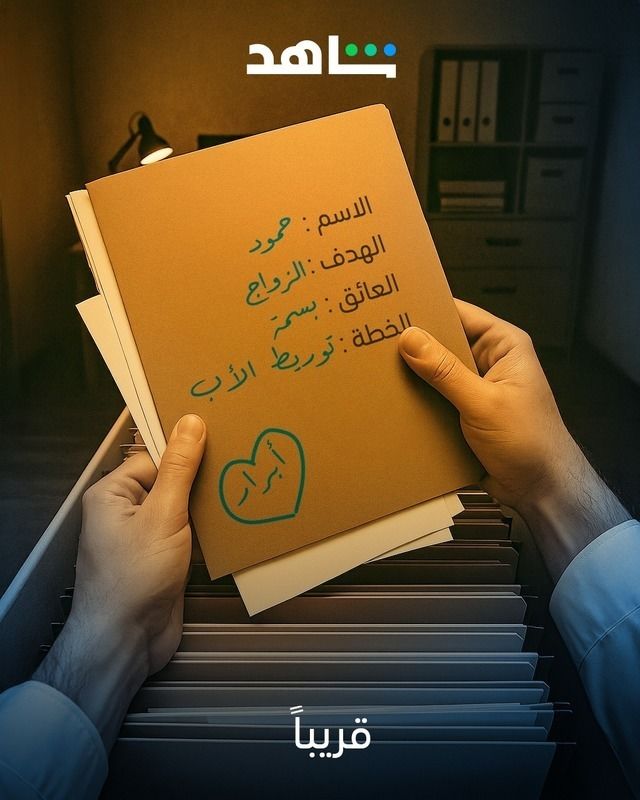 شاهد
الاسم : حمود
الهدف : الزواج
العائق : بسمة
الخطة : توريط الأب
أبرار
قريباً